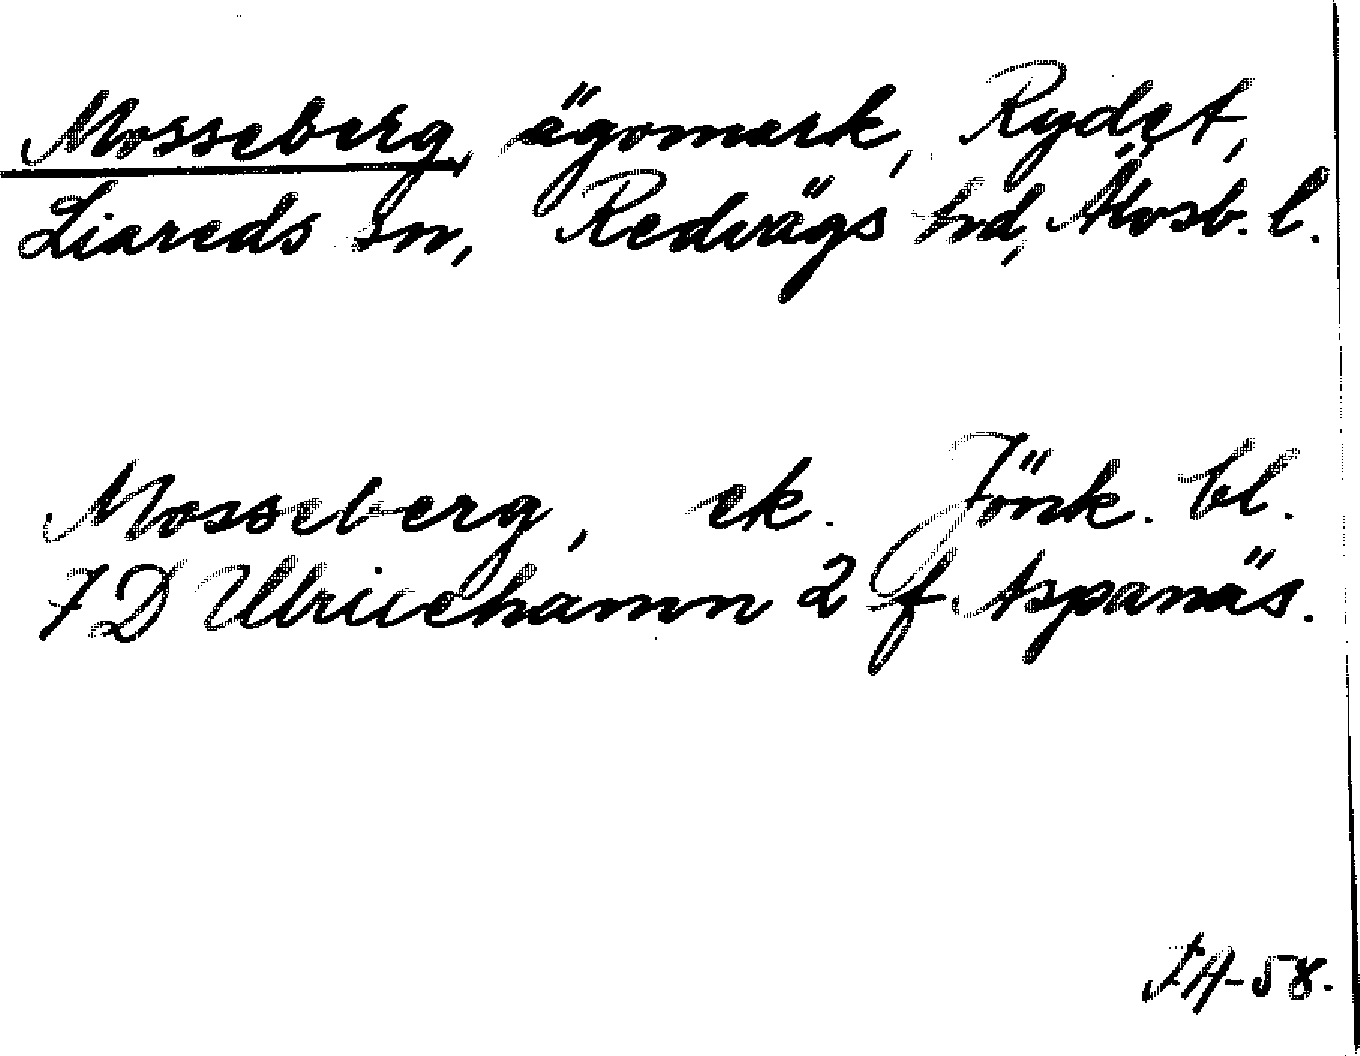 Mosseberg, ägomark, Rydet,
Liareds sn, Redvägs hd, Älvsb. l.
Mosseberg, ek. Jönk. bl.
7D Ulricehamn 2 f Aspanäs.
FA-58.